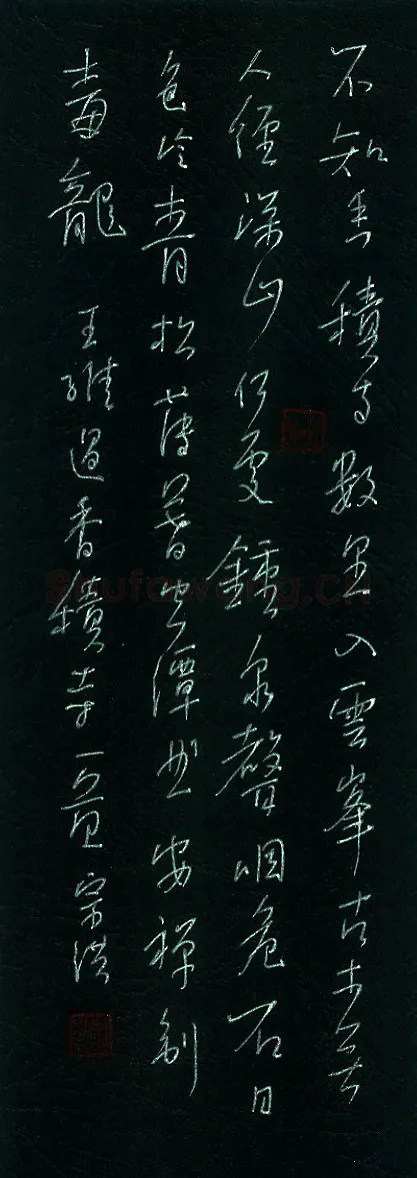 不知香積寺數里入雲峯古木無
人徑深山何處鍾泉聲咽危石日
色冷青松薄暮空潭曲安禪制
毒龍 王維過香積寺一首 宗洪
Shufawang.CN